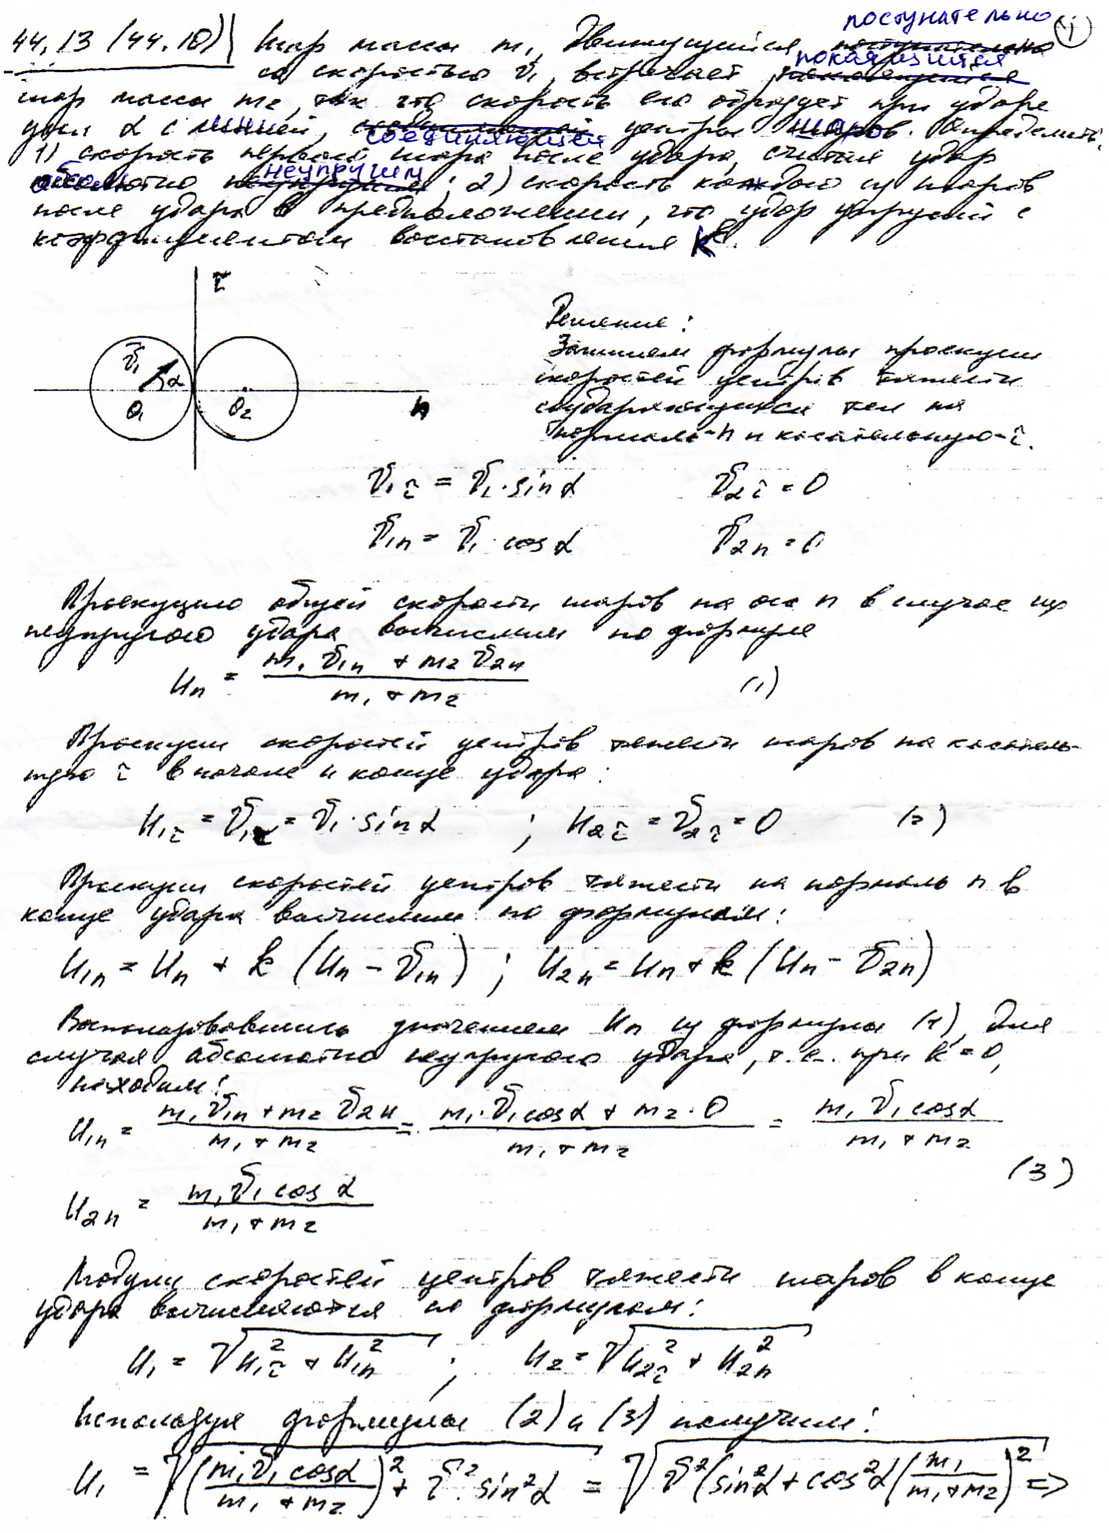 поступательно
①
44,13 (44.18) Шар массы m₁, движущийся поступательно
покоящийся
со скоростью v̄₁, встречает покоящийся
шар массы m₂, так что скорость его образует при ударе
угол α с линией, соединяющей центры шаров. Определить:
соединяющей
1) скорость первого шара после удара, считая удар
неупругим
абсолютно неупругим; 2) скорость каждого из шаров
после удара в предположении, что удар упругий с
коэффициентом восстановления k.
τ
v̄₁ α
O₁ O₂ n
Решение:
Запишем формулы проекции
скоростей центров тяжести
соударяющихся тел на
нормаль-n и касательную-τ.
v₁τ = v₁·sinα v₂τ = 0
v₁n = v₁·cosα v₂n = 0
Проекцию общей скорости шаров на ось n в случае их
неупругого удара вычислим по формуле
uₙ = (m₁v₁n + m₂v₂n)/(m₁ + m₂) (1)
Проекции скоростей центров тяжести шаров на касатель-
ную τ в начале и конце удара:
u₁τ = v₁τ = v₁·sinα ; u₂τ = v₂τ = 0 (2)
Проекции скоростей центров тяжести на нормаль n в
конце удара вычислим по формулам:
u₁n = uₙ + k (uₙ − v₁n) ; u₂n = uₙ + k (uₙ − v₂n)
Воспользовавшись значением uₙ из формулы (1), для
случая абсолютно неупругого удара, т.е. при k = 0,
находим:
u₁n = (m₁v₁n + m₂v₂n)/(m₁ + m₂) = (m₁·v₁cosα + m₂·0)/(m₁ + m₂) = (m₁v₁cosα)/(m₁ + m₂)
(3)
u₂n = (m₁v₁cosα)/(m₁ + m₂)
Модули скоростей центров тяжести шаров в конце
удара вычисляются по формулам:
u₁ = √(u₁τ² + u₁n²) ; u₂ = √(u₂τ² + u₂n²)
Используя формулы (2) и (3) получим:
u₁ = √((m₁v₁cosα/(m₁ + m₂))² + v²·sin²α) = √(v²(sin²α + cos²α(m₁/(m₁ + m₂))²) =>